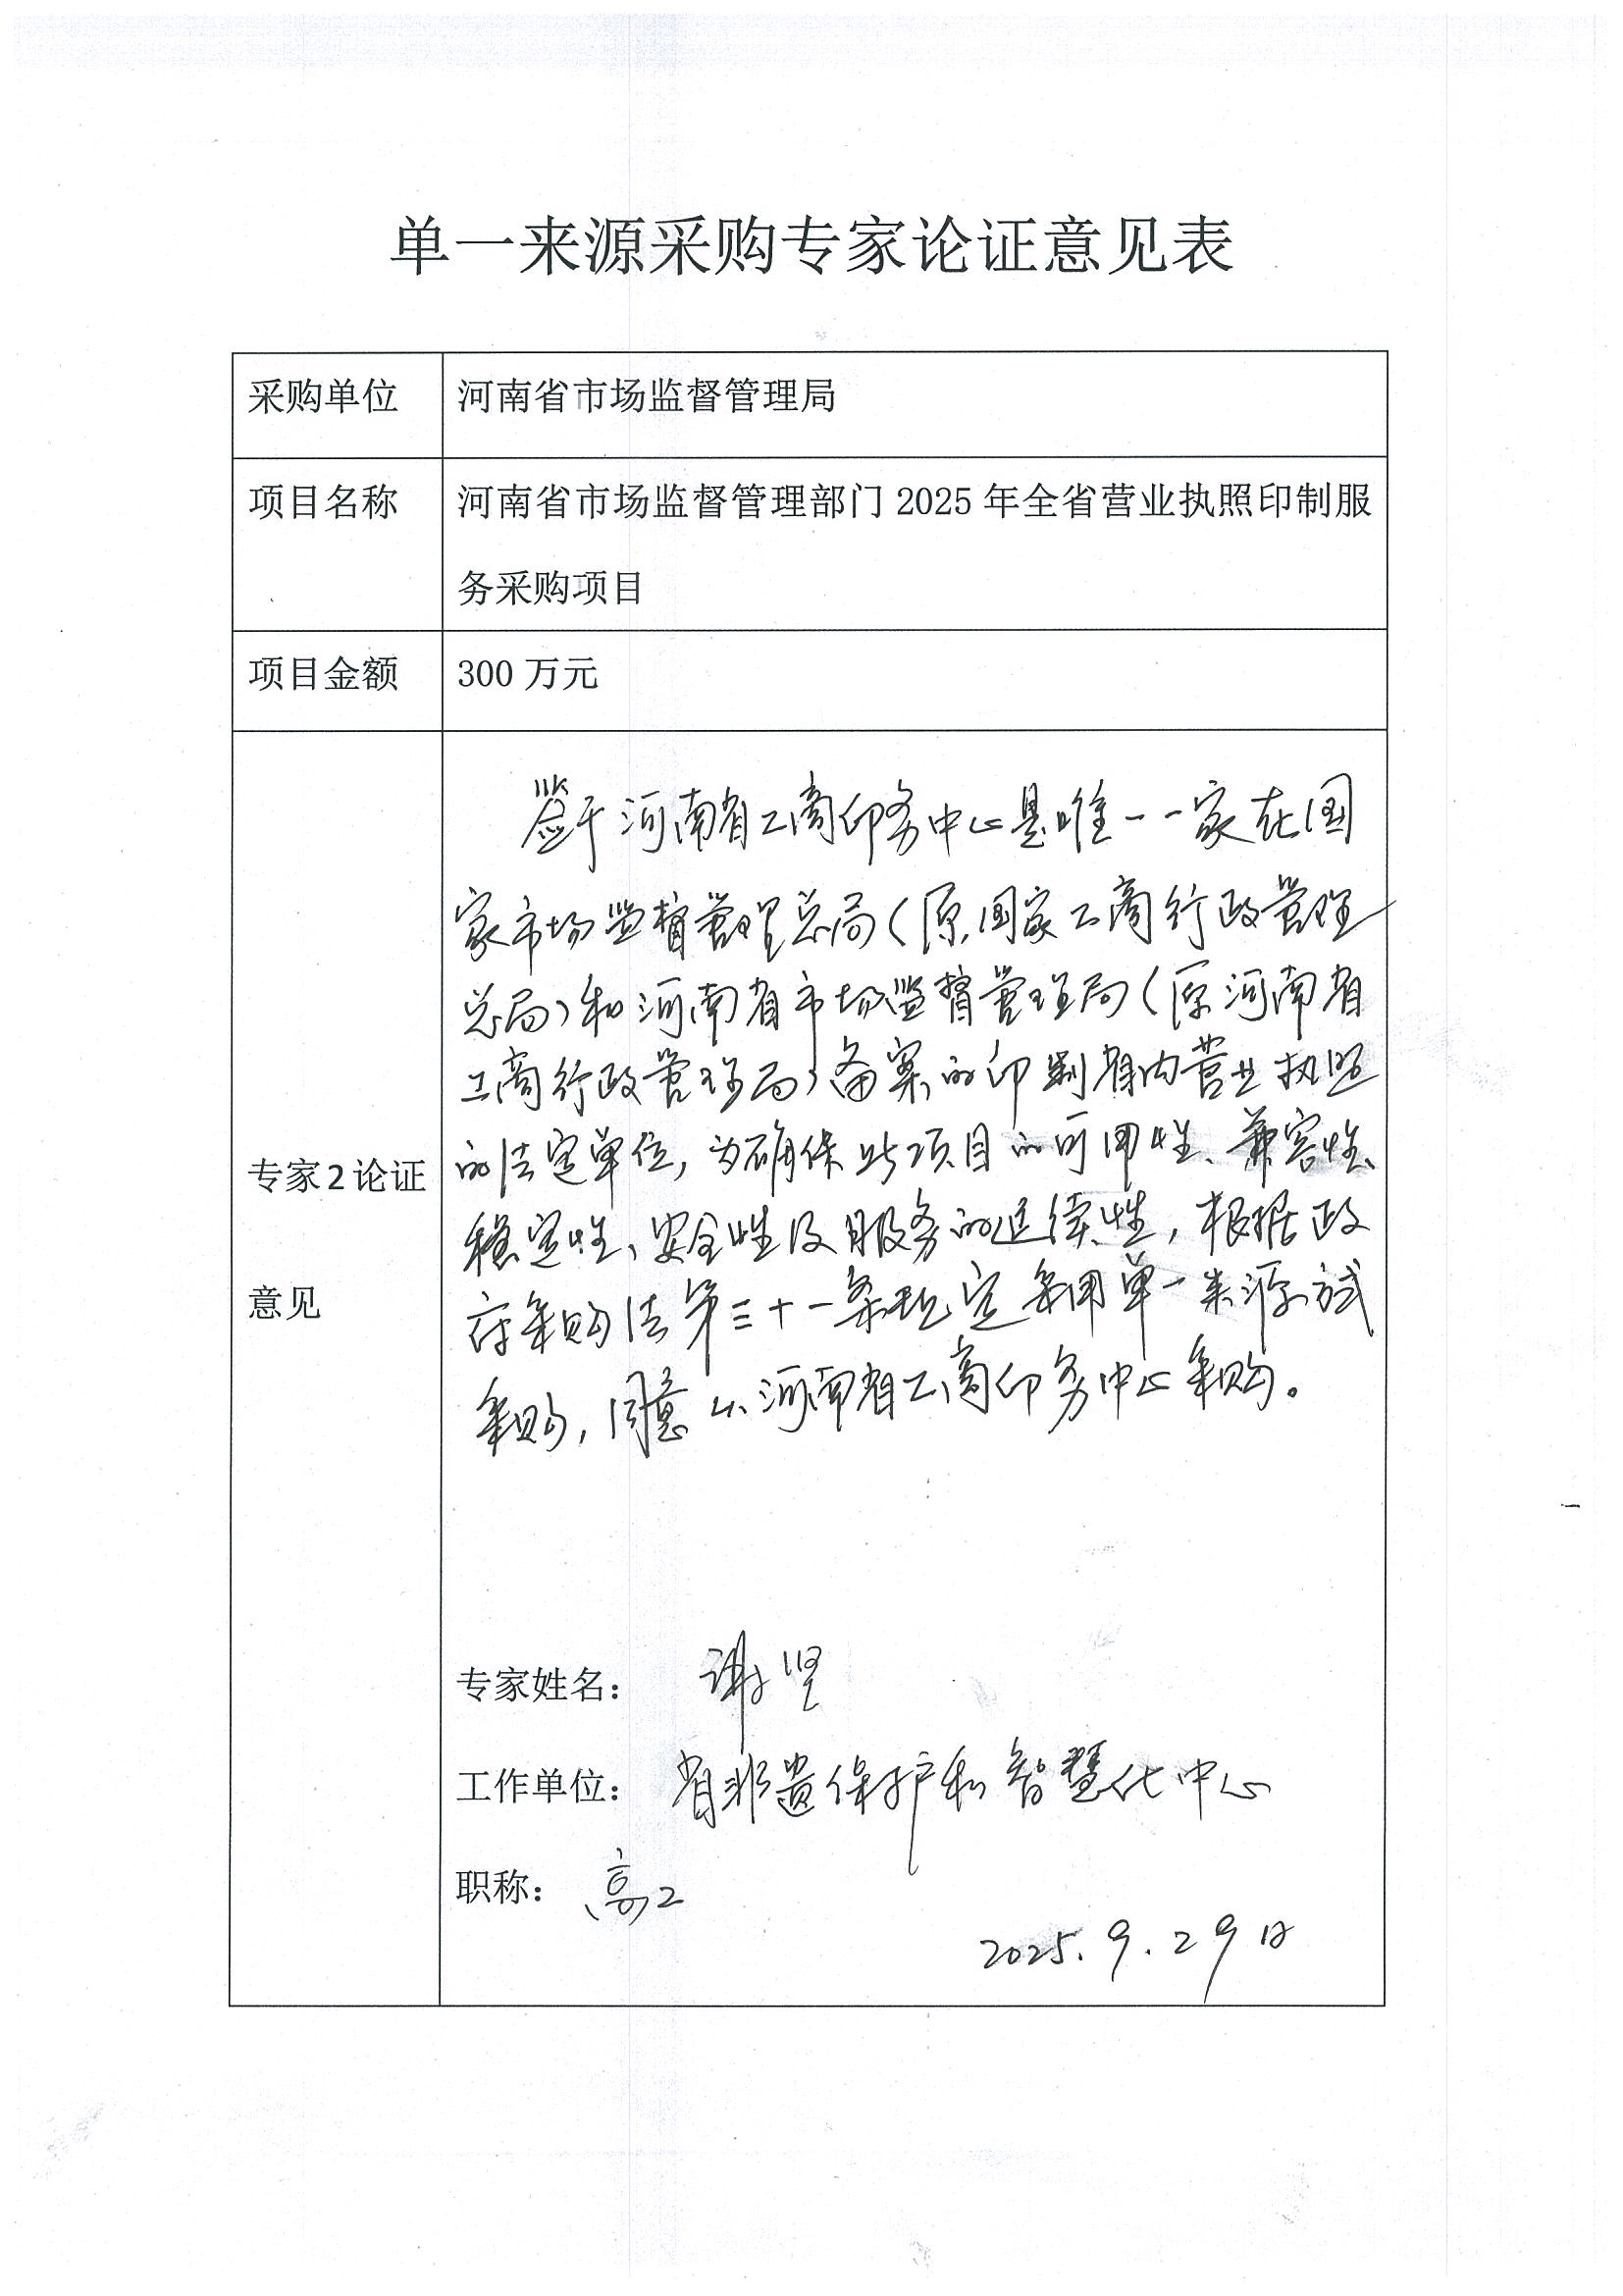 单一来源采购专家论证意见表
采购单位
河南省市场监督管理局
项目名称
河南省市场监督管理部门 2025 年全省营业执照印制服
务采购项目
项目金额
300 万元
专家2论证
意见
鉴于河南省工商印务中心是唯一一家在国
家市场监督管理总局（原国家工商行政管理
总局）和河南省市场监督管理局（原河南省
工商行政管理局）备案的印制省内营业执照
的法定单位，为确保此项目的可用性、兼容性、
稳定性、安全性及服务的延续性，根据政
府采购法第三十一条规定采用单一来源方式
采购，同意从河南省工商印务中心采购。
专家姓名： 谢坚
工作单位： 省非遗保护和智慧化中心
职称： 高工
2025.9.29日